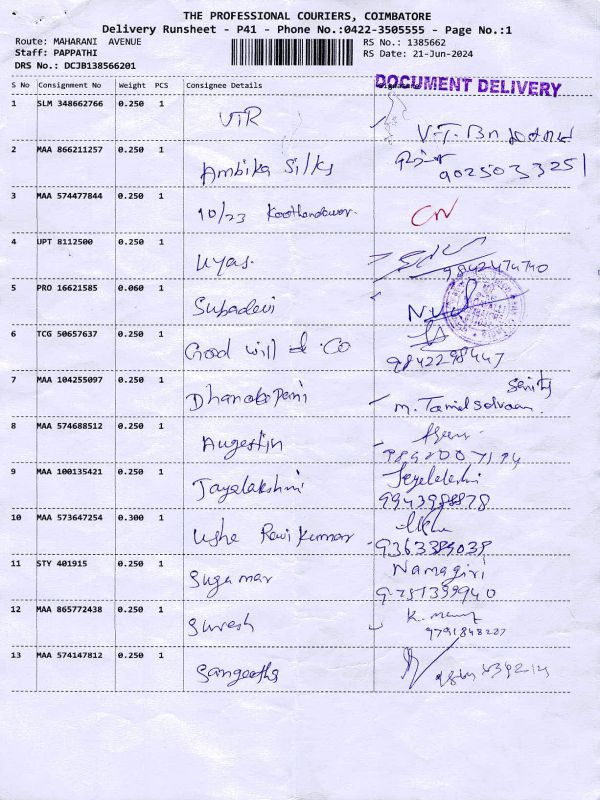 THE PROFESSIONAL COURIERS, COIMBATORE
Delivery Runsheet - P41 - Phone No.:0422-3505555 - Page No.:1
Route: MAHARANI AVENUE
RS No.: 1385662
Staff: PAPPATHI
RS Date: 21-Jun-2024
DRS No.: DCJB138566201
S No Consignment No Weight PCS Consignee Details
DOCUMENT DELIVERY
1 SLM 348662766 0.250 1 VTR
2 MAA 866211257 0.250 1 Ambika Silks
9025033251
3 MAA 574477844 0.250 1 10/23
4 UPT 8112500 0.250 1 Uyas.
9842474740
5 PRO 16621585 0.060 1 Subadevi
6 TCG 50657637 0.250 1 Good will & Co
9842298447
7 MAA 104255097 0.250 1 Dhanalapani
m. Tamil Selvan
8 MAA 574688512 0.250 1 Augestin
9 MAA 100135421 0.250 1 Jayalakshmi
9943988878
10 MAA 573647254 0.300 1 Usha Ravi Kumar
9363389039
11 STY 401915 0.250 1 Sugumar Namagiri
9751399940
12 MAA 865772438 0.250 1 Suresh
13 MAA 574147812 0.250 1 Sangeetha